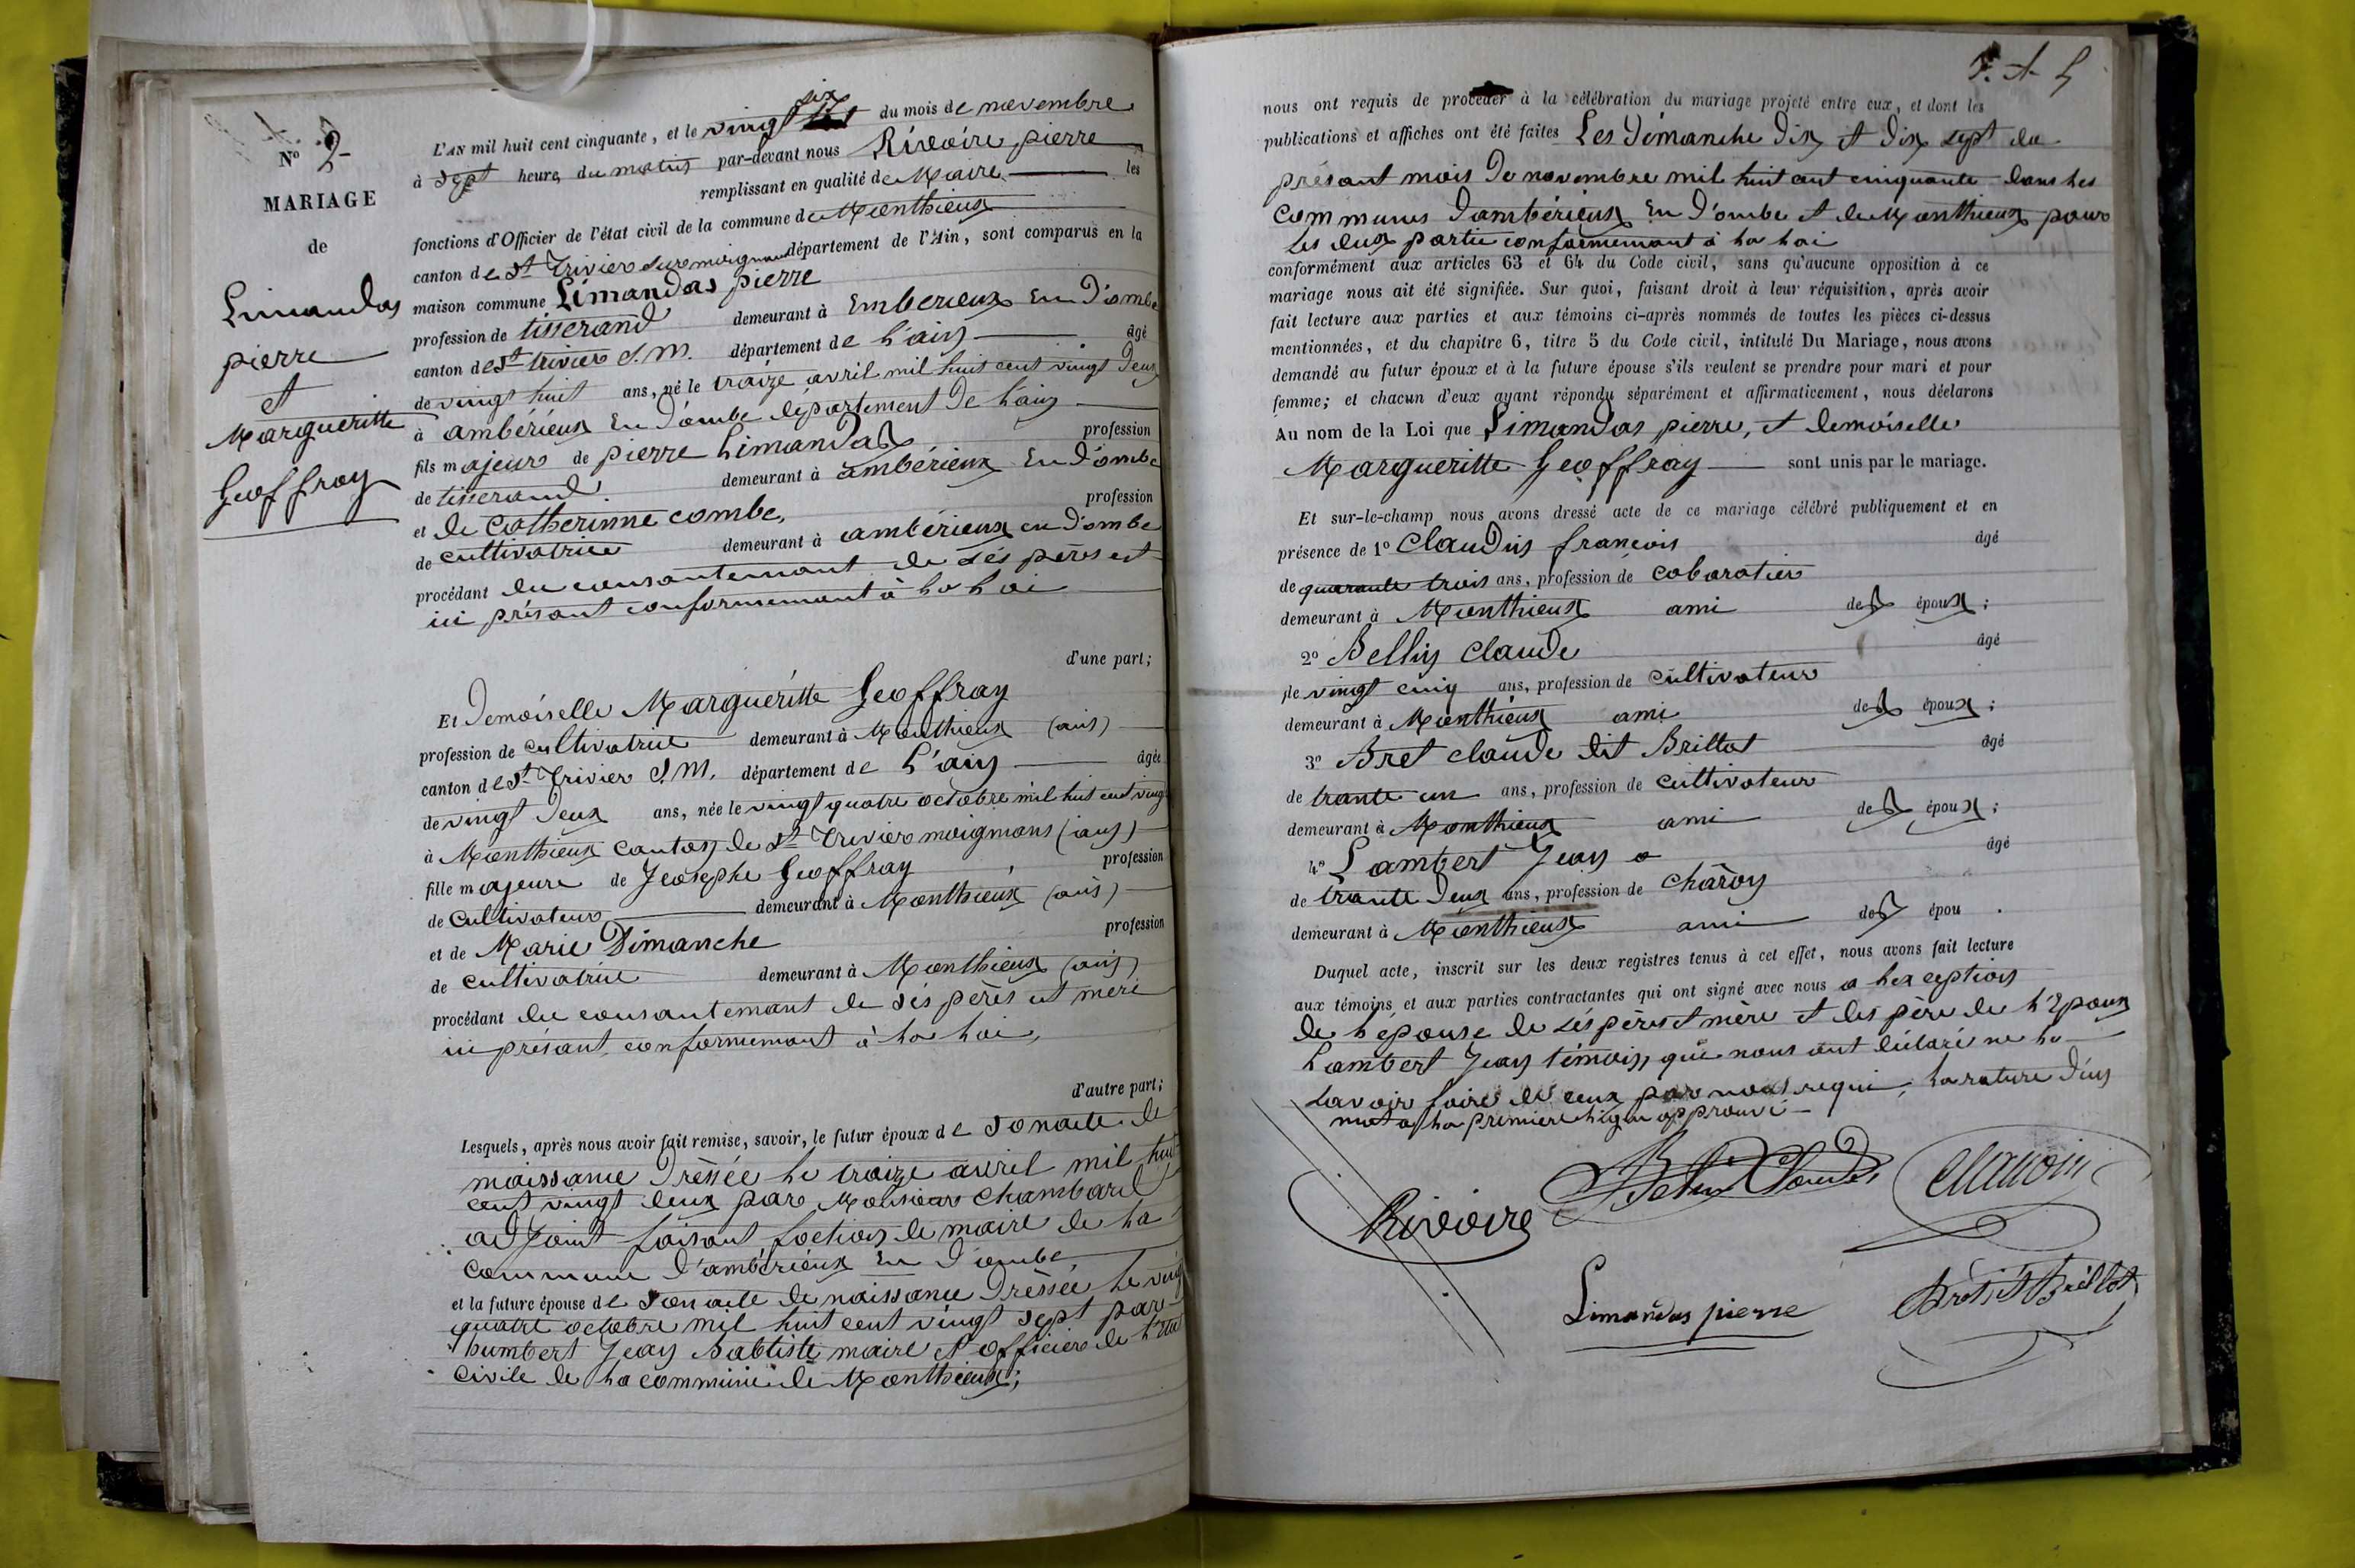 N° 2
MARIAGE
de
Limandas
pierre
et
Margueritte
Geoffray
L'AN mil huit cent cinquante, et le vingt six du mois de novembre
à sept heure du matin par-devant nous Rivoire pierre
remplissant en qualité de Maire les
fonctions d'Officier de l'état civil de la commune de Monthieux
canton de St Trivier sur moignans département de l'Ain, sont comparus en la
maison commune Limandas pierre
profession de tisserand demeurant à Emberieux En Dombe
canton de St trivier S.M. département de L'ain âgé
de vingt huit ans, né le traize avril mil huit cent vingt deux
à ambérieux En Dombe département De Lain
fils majeur de pierre Limandas profession
de tisserand demeurant à ambérieux En Dombe
et de Catherinne combe, profession
de cultivatrice demeurant à ambérieux en Dombe
procédant du consantemant de sés pères et
ici présant conformemant à La Loi
d'une part;
Et Demoiselle Margueritte Geoffray
profession de cultivatrice demeurant à Monthieux (ain)
canton de St Trivier S.M. département de L'ain âgée
de vingt Deux ans, née le vingt quatre octobre mil huit cent vingt
à Monthieux canton de St Trivier moignans (ain)
fille majeure de Joosephe Geoffray profession
de cultivateur demeurant à Monthieux (ain)
et de Marie Dimanche profession
de cultivatrice demeurant à Monthieux (ain)
procédant du consantemant de sés pères et mère
ici présant, conformemant à La Loi,
d'autre part;
Lesquels, après nous avoir fait remise, savoir, le futur époux de son acte de
naissance Dréssée le traize avril mil huit
cent vingt deux par Monsieur Chambard
adjoint faisant foction de maire de La
commune d'ambérieux En Dombe,
et la future épouse de son acte de naissance Dréssée le vingt
quatre octobre mil huit cent vingt sept par
humbert Jean Babtiste maire et officier de L'état
Civile de La commune de Monthieux;
nous ont requis de procéder à la célébration du mariage projeté entre eux, et dont les
publications et affiches ont été faites Les Dimanche Dix et Dix sept du
présant mois De novembre mil huit cent cinquante dans les
communes D'ambérieux En D'ombe et de Monthieux pour
les deux partie conformemant à La Loi
conformément aux articles 63 et 64 du Code civil, sans qu'aucune opposition à ce
mariage nous ait été signifiée. Sur quoi, faisant droit à leur réquisition, après avoir
fait lecture aux parties et aux témoins ci-après nommés de toutes les pièces ci-dessus
mentionnées, et du chapitre 6, titre 5 du Code civil, intitulé Du Mariage, nous avons
demandé au futur époux et à la future épouse s'ils veulent se prendre pour mari et pour
femme; et chacun d'eux ayant répondu séparément et affirmativement, nous déclarons
Au nom de la Loi que Limandas pierre, et demoiselle
Margueritte Geoffray sont unis par le mariage.
Et sur-le-champ nous avons dressé acte de ce mariage célébré publiquement et en
présence de 1° Claudin françois âgé
de quarante trois ans, profession de cabaratier
demeurant à Monthieux ami des époux;
2° Bellin Claude âgé
de vingt cinq ans, profession de cultivateur
demeurant à Monthieux ami des époux;
3° Bret claude dit Brillat âgé
de trante un ans, profession de cultivateur
demeurant à Monthieux ami des époux;
4° Lambert Jean âgé
de trante Deux ans, profession de charon
demeurant à Monthieux ami des épou.
Duquel acte, inscrit sur les deux registres tenus à cet effet, nous avons fait lecture
aux témoins et aux parties contractantes qui ont signé avec nous a Lexception
de L'épouse de sés pères et mère et des père de L'Epoux
Lambert Jean témoin, qui nous ont déclaré ne La
savoir faire de ceux par nous requi; La rature d'un
mot a La premiere Ligne approuvé
Rivoire
Limandas pierre